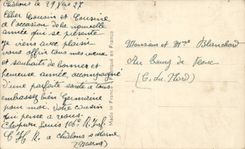 le 29 Xbre 27
Cher Cousin et Cousine
à l'occasion de la nouvelle
année qui se présente
je viens avec plaisir
vous offrir tous mes vœux
et souhaits de bonne et
heureuse année accompagné
d'une parfaite santé à tous
embrassez bien Germaine
pour moi. Votre cousin
qui pense à vous.
Louis 106e R.
C H R à Châlons s Marne
(Marne)
Monsieur et Mme Blanchard
au bourg de
(C. du Nord)